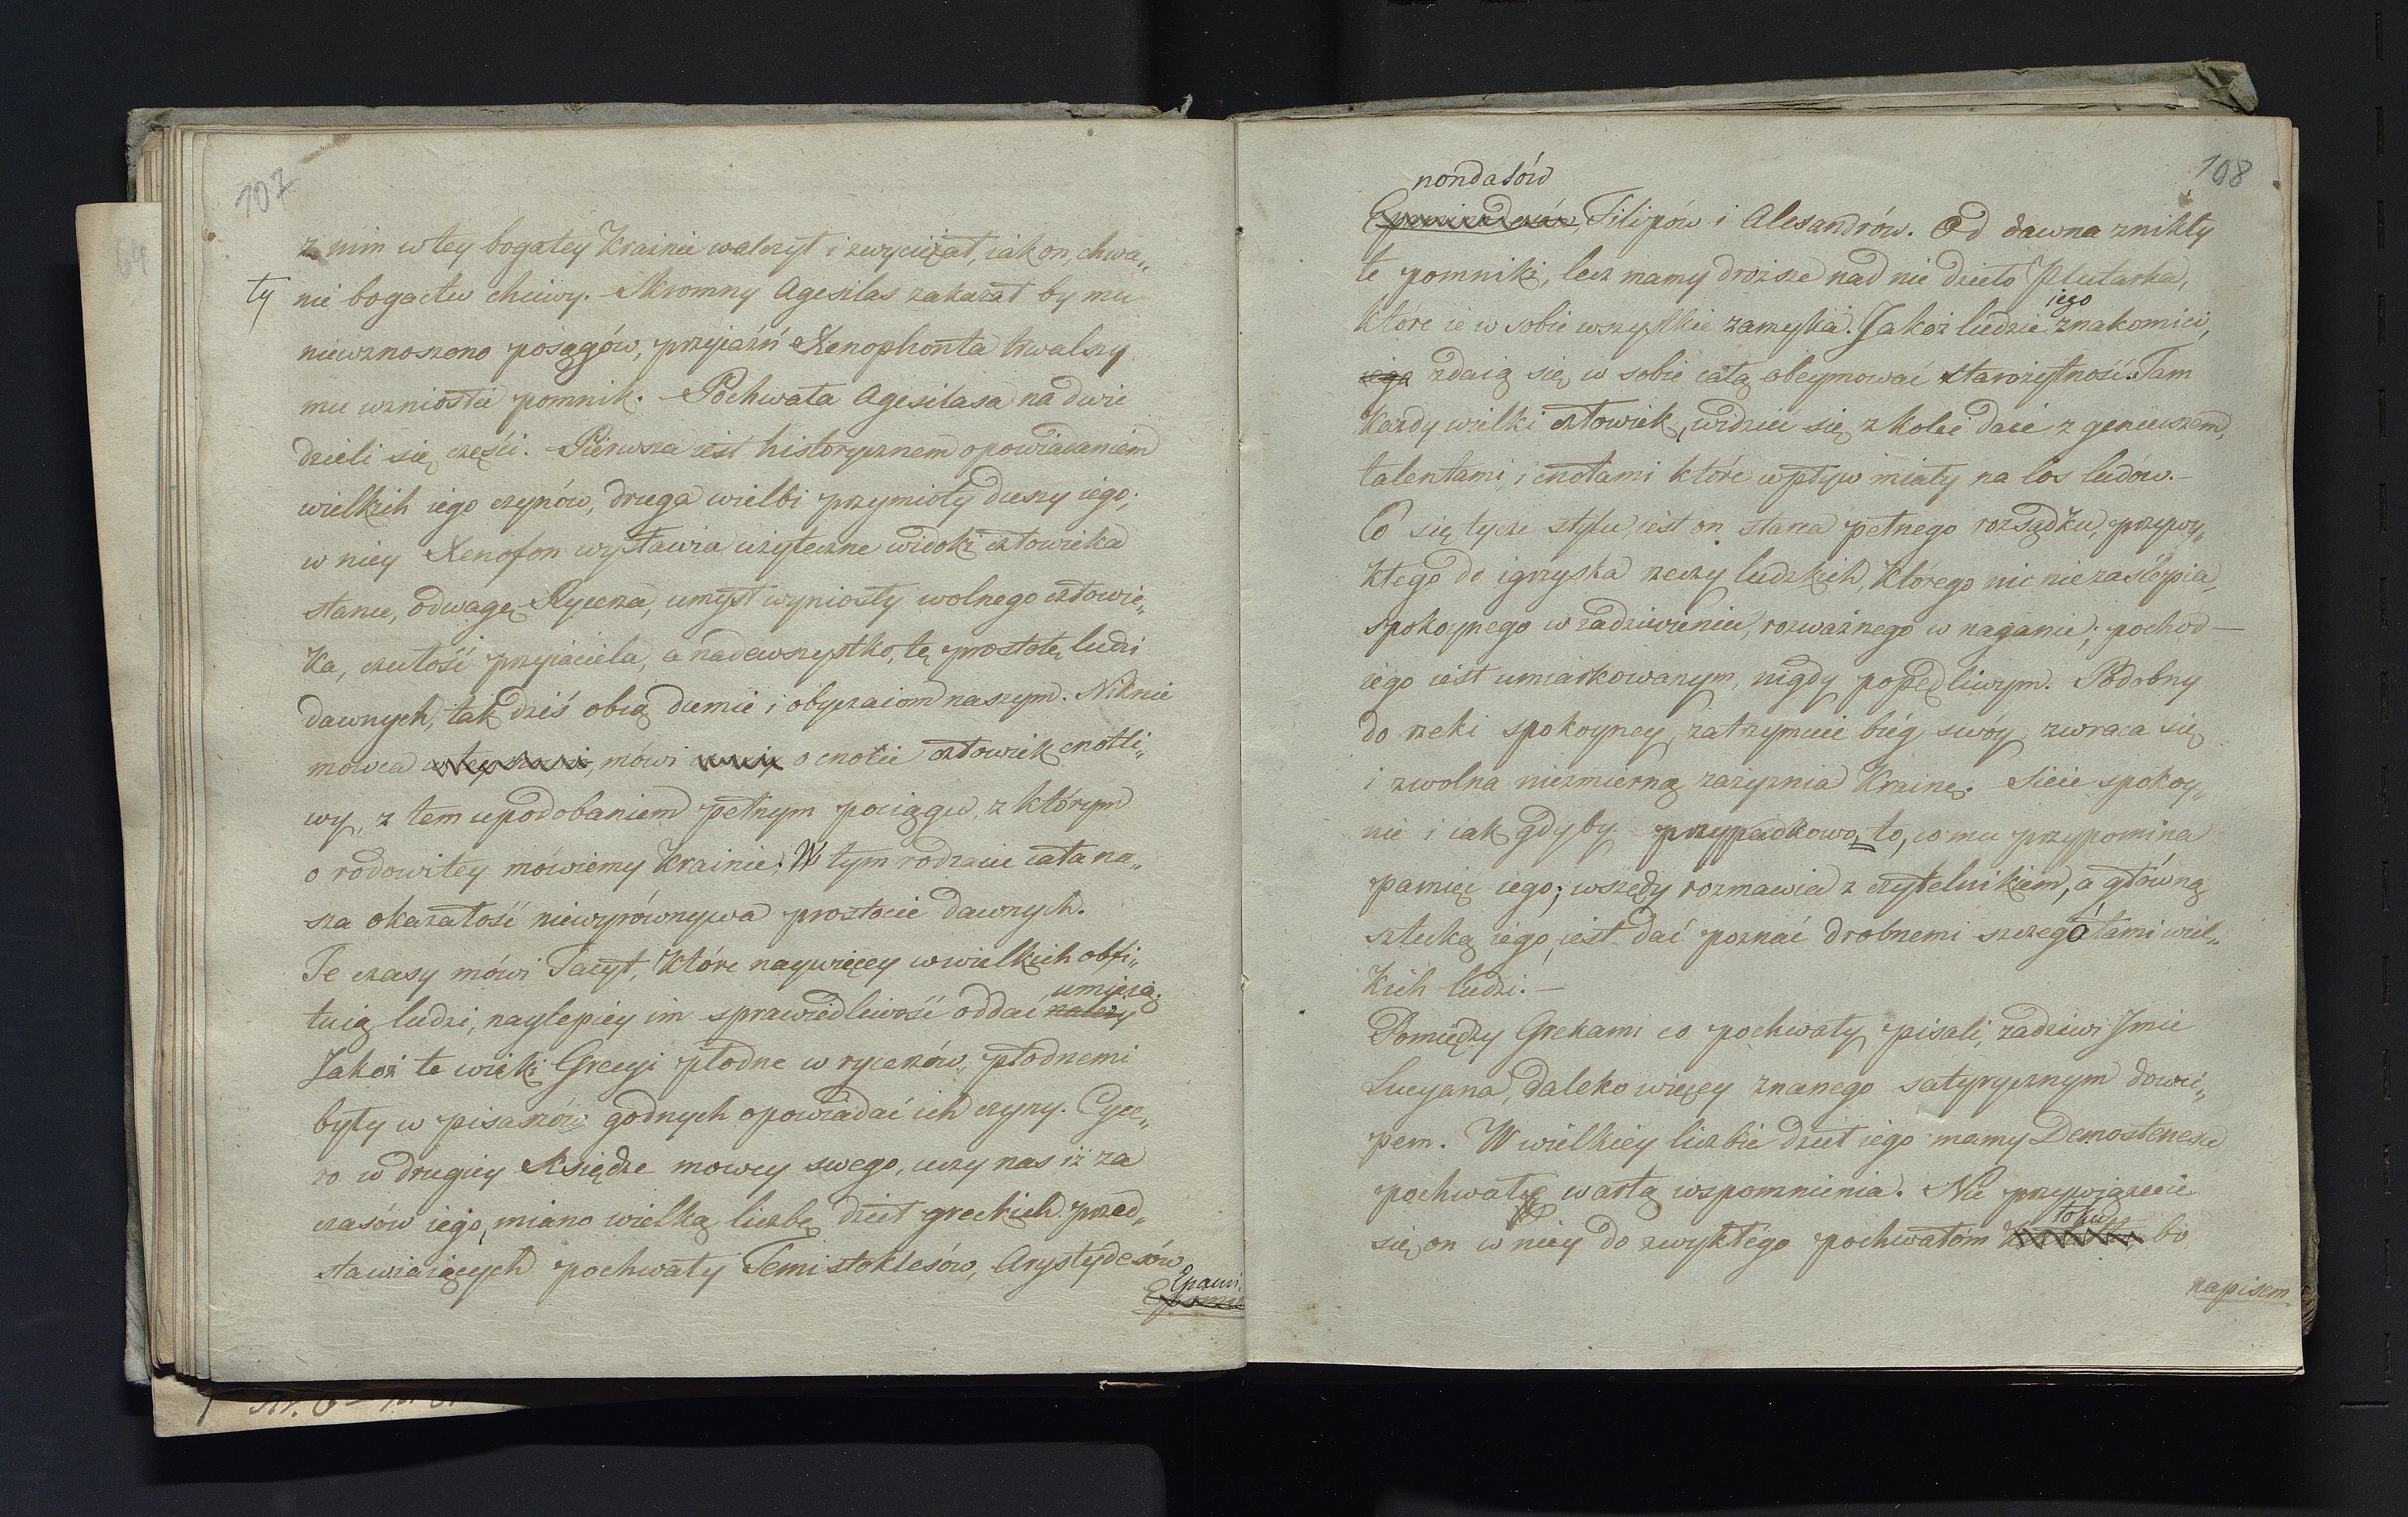 107
z nim w tey bogatey Krainie walczył i zwyciężał, iak on, chwa„
ty nie bogactw chciwy. Skromny Agesilas zakazał by mu
niewznoszono posągów, przyiaźń Xenophonta trwalszy
mu wzniosła pomnik. Pochwała Agesilasa na dwie
dzieli się części. Pierwsza iest historycznem opowiadaniem
wielkich iego czynów, druga wielbi przymioty duszy iego;
w niey Xenofon wystawia użyteczne widoki człowieka
stanu, odwagę Rycerza, umysł wyniosły wolnego człowie„
ka, czułość przyiaciela, a nadewszystko, tę prostotę ludzi
dawnych, tak dziś obcą dumie i obyczaiom naszym. Niknie
mowca, mówi o cnocie człowiek cnotli„
wy, z tem upodobaniem pełnym pociągu, z którym
o rodowitey mówiemy Krainie. W tym rodzaiu cała na„
sza okazałość niewyrównywa prostocie dawnych.
Te czasy mówi Tacyt, które naywięcey w wielkich obfi„
umieią.
tuią ludzi, naylepiey im sprawiedliwość oddać należy
Jakoż te wieki Grecyi płodne w rycerzów, płodnemi
były w pisarzów godnych opowiadać ich czyny. Cyce„
ro w drugiey Księdze mowcy swego, uczy nas iż za
czasów iego, miano wielką liczbę dzieł greckich przed„
stawiaiących pochwały Temistoklesów, Arystydesów
Epami.
108
nondasów
Epaminondasów, Filipów i Alesandrów. Od dawna znikły
te pomniki, lecz mamy droższe nad nie dzieło Plutarka,
iego
które ie w sobie wszystkie zamyka. Jakoż ludzie znakomici,
iego zdaią się w sobie całą obeymować starożytność. Tam
każdy wielki człowiek, widzieć się z kolei daie z geniuszem,
talentami, i cnotami które wpływ miały na los ludów.–
Co się tycze stylu, iest on starca pełnego rozsądku, przywy„
kłego do igrzyska rzeczy ludzkich, którego nic nie zaślepia,
spokoynego w zadziwieniu, rozważnego w naganie; pochod –
iego iest umiarkowanym, nigdy popędliwym. Podobny
do rzeki spokoyney, zatrzymuie bieg swóy, zwraca się
i zwolna niezmierną zażyznia Krainę. Sieie spokoy„
nie i iak gdyby przypadkowo, to, co mu przypomina
pamięć iego; wszędy rozmawia z czytelnikiem, a główną
sztuką iego, iest dać poznać drobnemi szczegółami wiel„
kich ludzi.–
Pomiędzy Grekami co pochwały pisali, zadziwi Jmie
Lucyana, daleko więcey znanego satyrycznym dowci„
pem. W wielkiey liczbie dzieł iego mamy Demostenesa
pochwałę wartą wspomnienia. Nie przywiązuie
toku
się on w niey do zwykłego pochwałóm bo
napisem